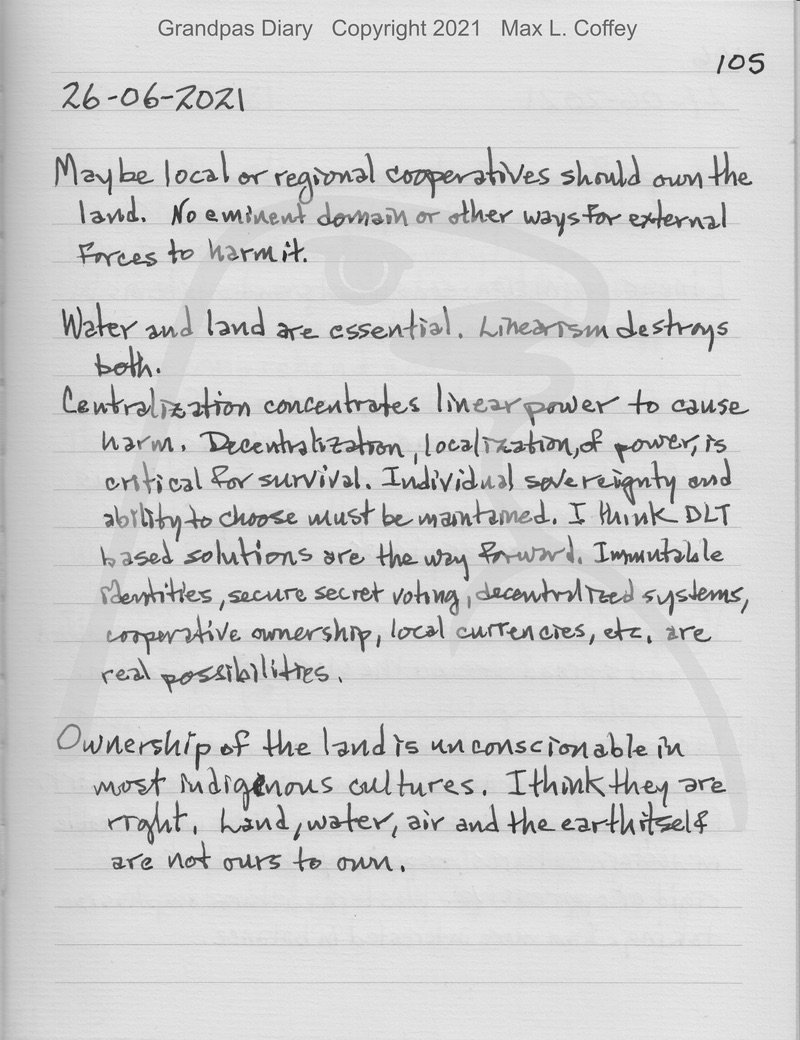 Grandpas Diary Copyright 2021 Max L. Coffey
105
26-06-2021
Maybe local or regional cooperatives should own the
land. No eminent domain or other ways for external
forces to harm it.
Water and land are essential. Linearism destroys
both.
Centralization concentrates linear power to cause
harm. Decentralization, localization, of power, is
critical for survival. Individual sovereignty and
ability to choose must be maintained. I think DLT
based solutions are the way forward. Immutable
identities, secure secret voting, decentralized systems,
cooperative ownership, local currencies, etc. are
real possibilities.
Ownership of the land is unconscionable in
most indigenous cultures. I think they are
right. Land, water, air and the earth itself
are not ours to own.